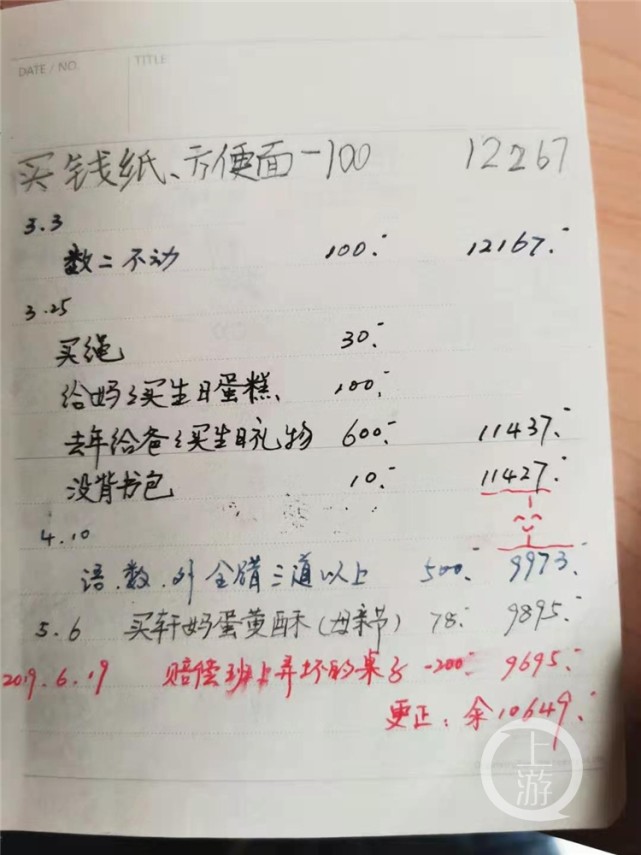 DATE / NO. TITLE
买钱纸、方便面-100 12267
3.3
数二不动 100.- 12167.-
3.25
买绳 30.-
给妈々买生日蛋糕、 100.-
去年给爸々买生日礼物 600.- 11437.-
没背书包 10.- 11427.-
4.10
语.数.外 全错三道以上 500. 9973.-
5.6 买轩妈蛋黄酥(母亲节) 78.- 9895.-
2019.6.19 赔偿班上弄坏的桌子 -200.- 9695.-
更正:余10649.-
上游